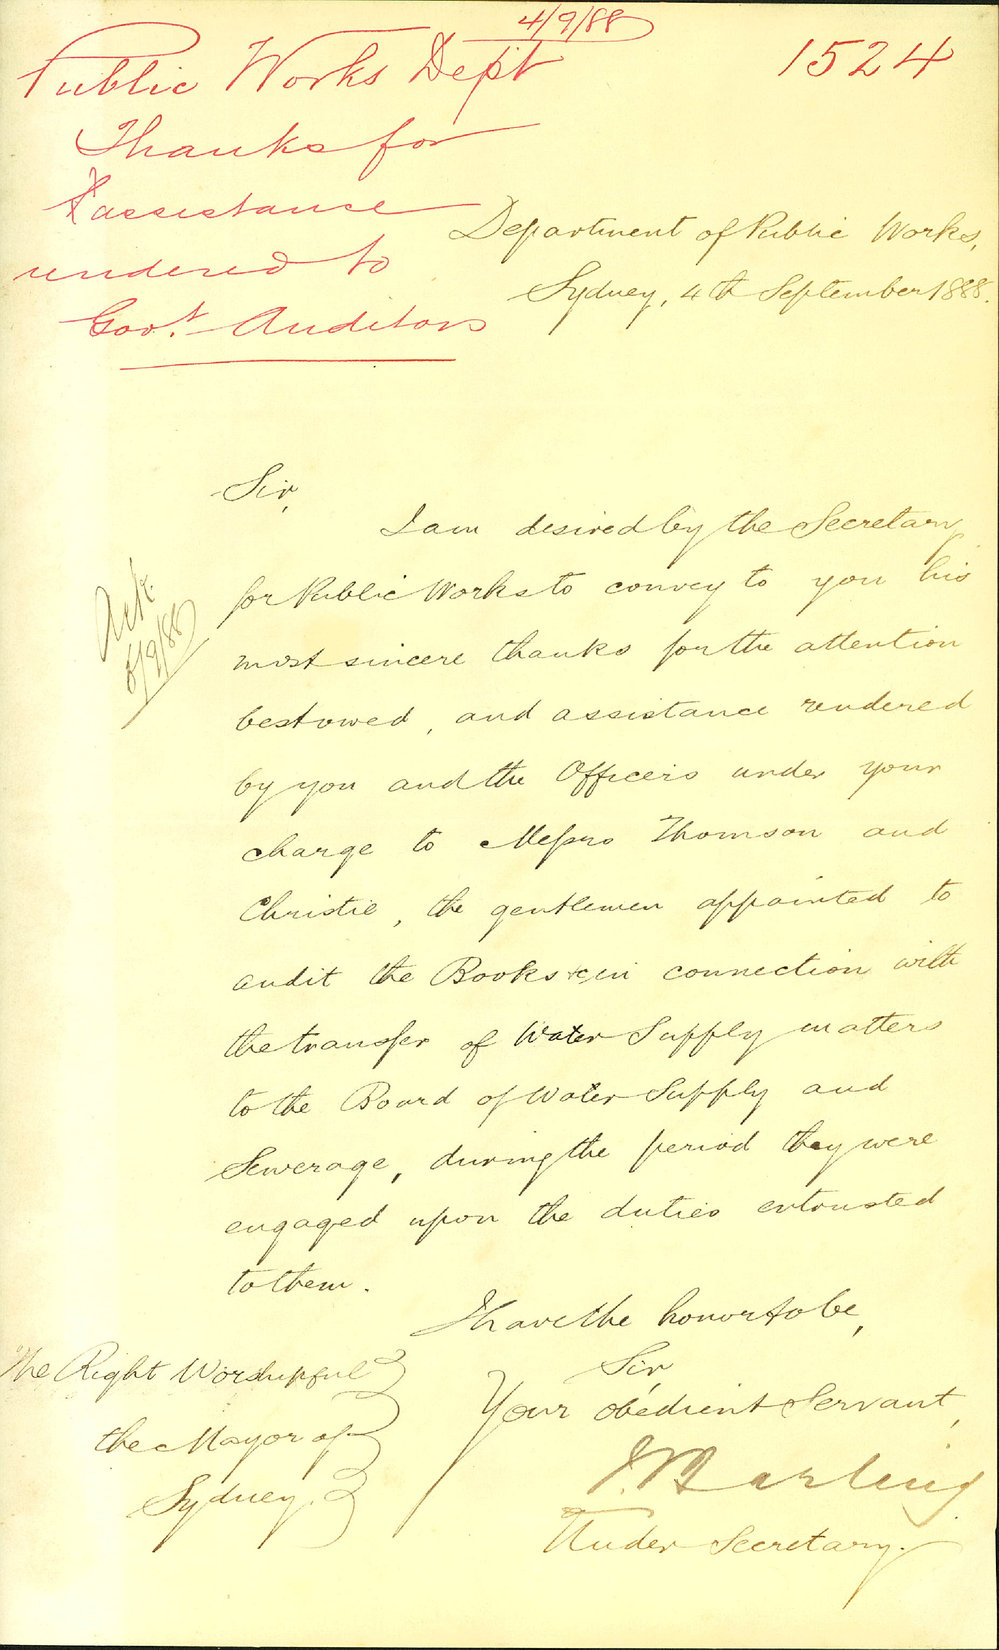 4/9/88
1524
Public Works Dept
Thanks for
assistance
rendered to
Govt. Auditors
Department of Public Works,
Sydney, 4th September 1888.
Sir,
I am desired by the Secretary
for Public Works to convey to you his
most sincere thanks for the attention
bestowed, and assistance rendered
by you and the Officers under your
charge to Messrs Thomson and
Christie, the gentlemen appointed to
audit the Books &c, in connection with
the transfer of Water Supply matters
to the Board of Water Supply and
Sewerage, during the period they were
engaged upon the duties entrusted
to them.
Ack.
6/9/88
I have the honor to be,
Sir,
Your obedient Servant,
Under Secretary.
The Right Worshipful
the Mayor of
Sydney.